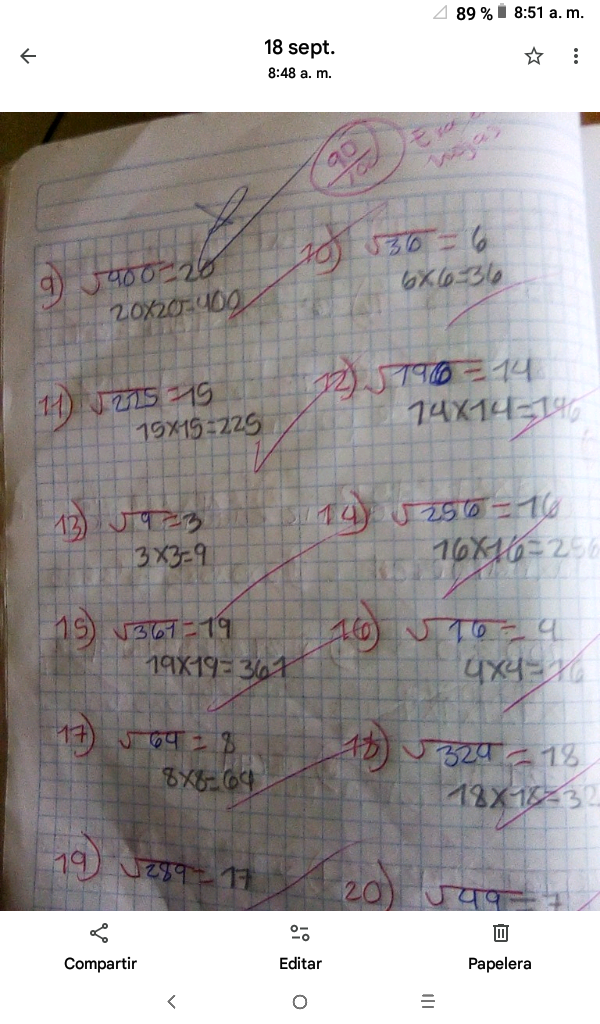 89 % 8:51 a. m.
18 sept.
8:48 a. m.
90/100
hojas
9) √400=20
20x20=400
10) √36 = 6
6x6=36
11) √225=15
15x15=225
12) √196=14
14x14=196
13) √9=3
3x3=9
14) √256=16
16x16=256
15) √361=19
19x19=361
16) √16=4
4x4=16
17) √64=8
8x8=64
18) √324=18
18x18=32
19) √289=17
20) √49=7
Compartir Editar Papelera